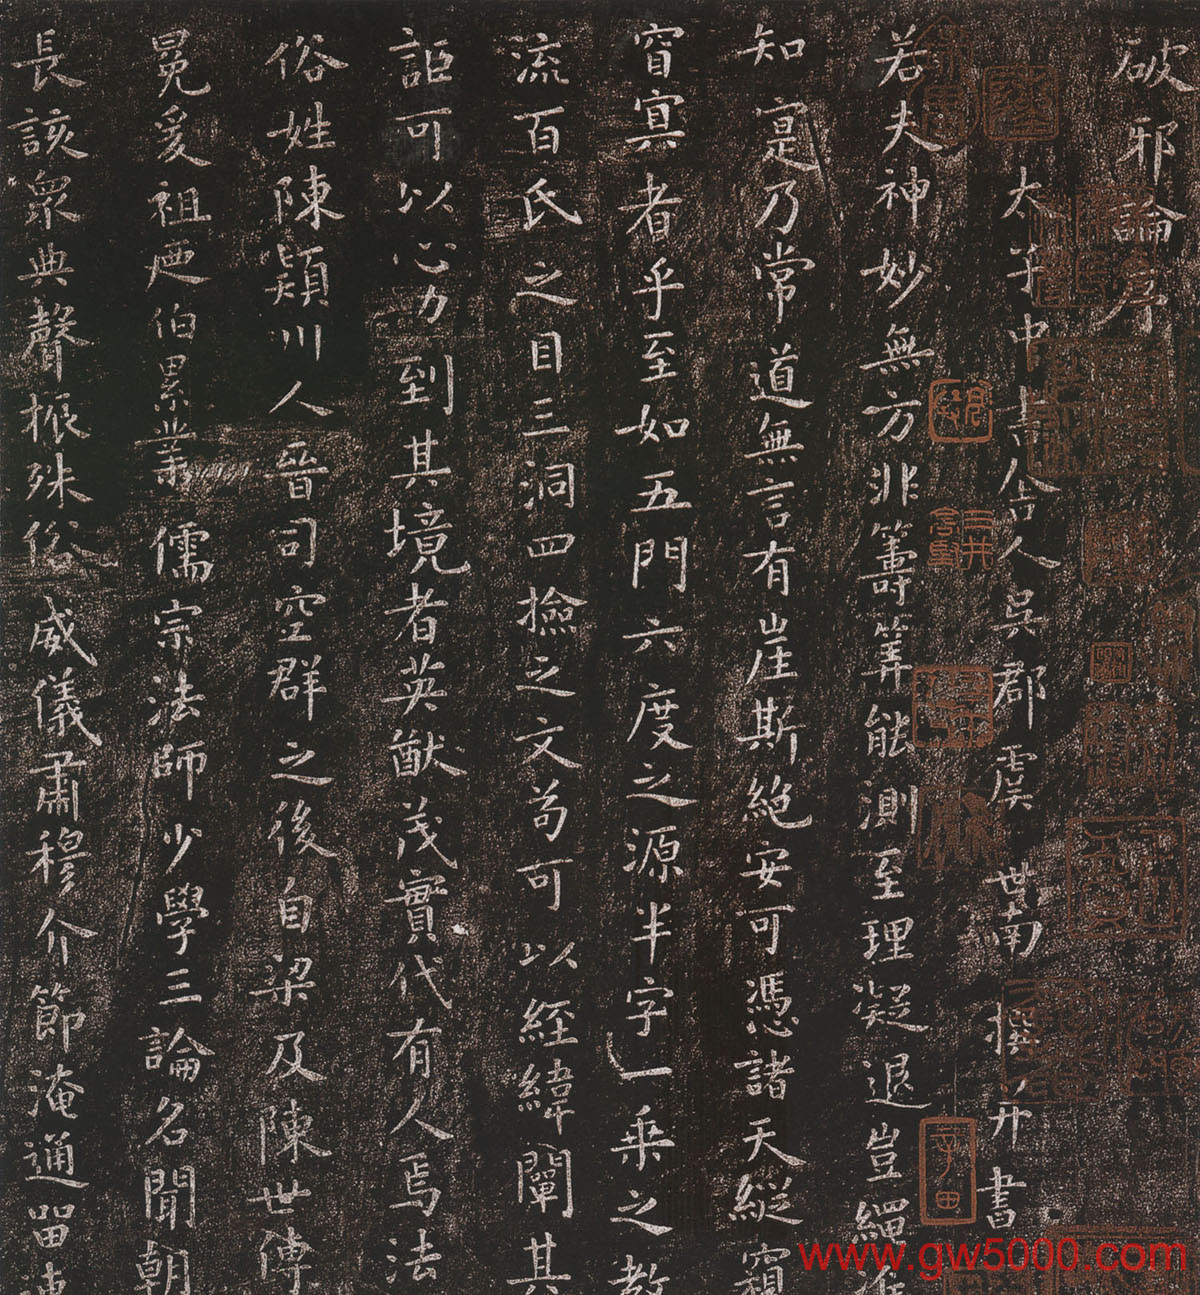 破邪論序
太子中書舍人吳郡虞世南撰并書
若夫神妙無方非籌筭能測至理凝邈豈繩準
知寔乃常道無言有崖斯絕安可憑諸天縱窺
窅寘者乎至如五門六度之源半字一乘之教
流百氏之目三洞四撿之文茍可以經緯闡其
詎可以心力到其境者英猷茂實代有人焉法
俗姓陳潁川人晉司空群之後自梁及陳世傳
冕爰祖迺伯累業儒宗法師少學三論名聞朝
長該眾典聲振殊俗威儀肅穆介節淹通留連
www.gw5000.com